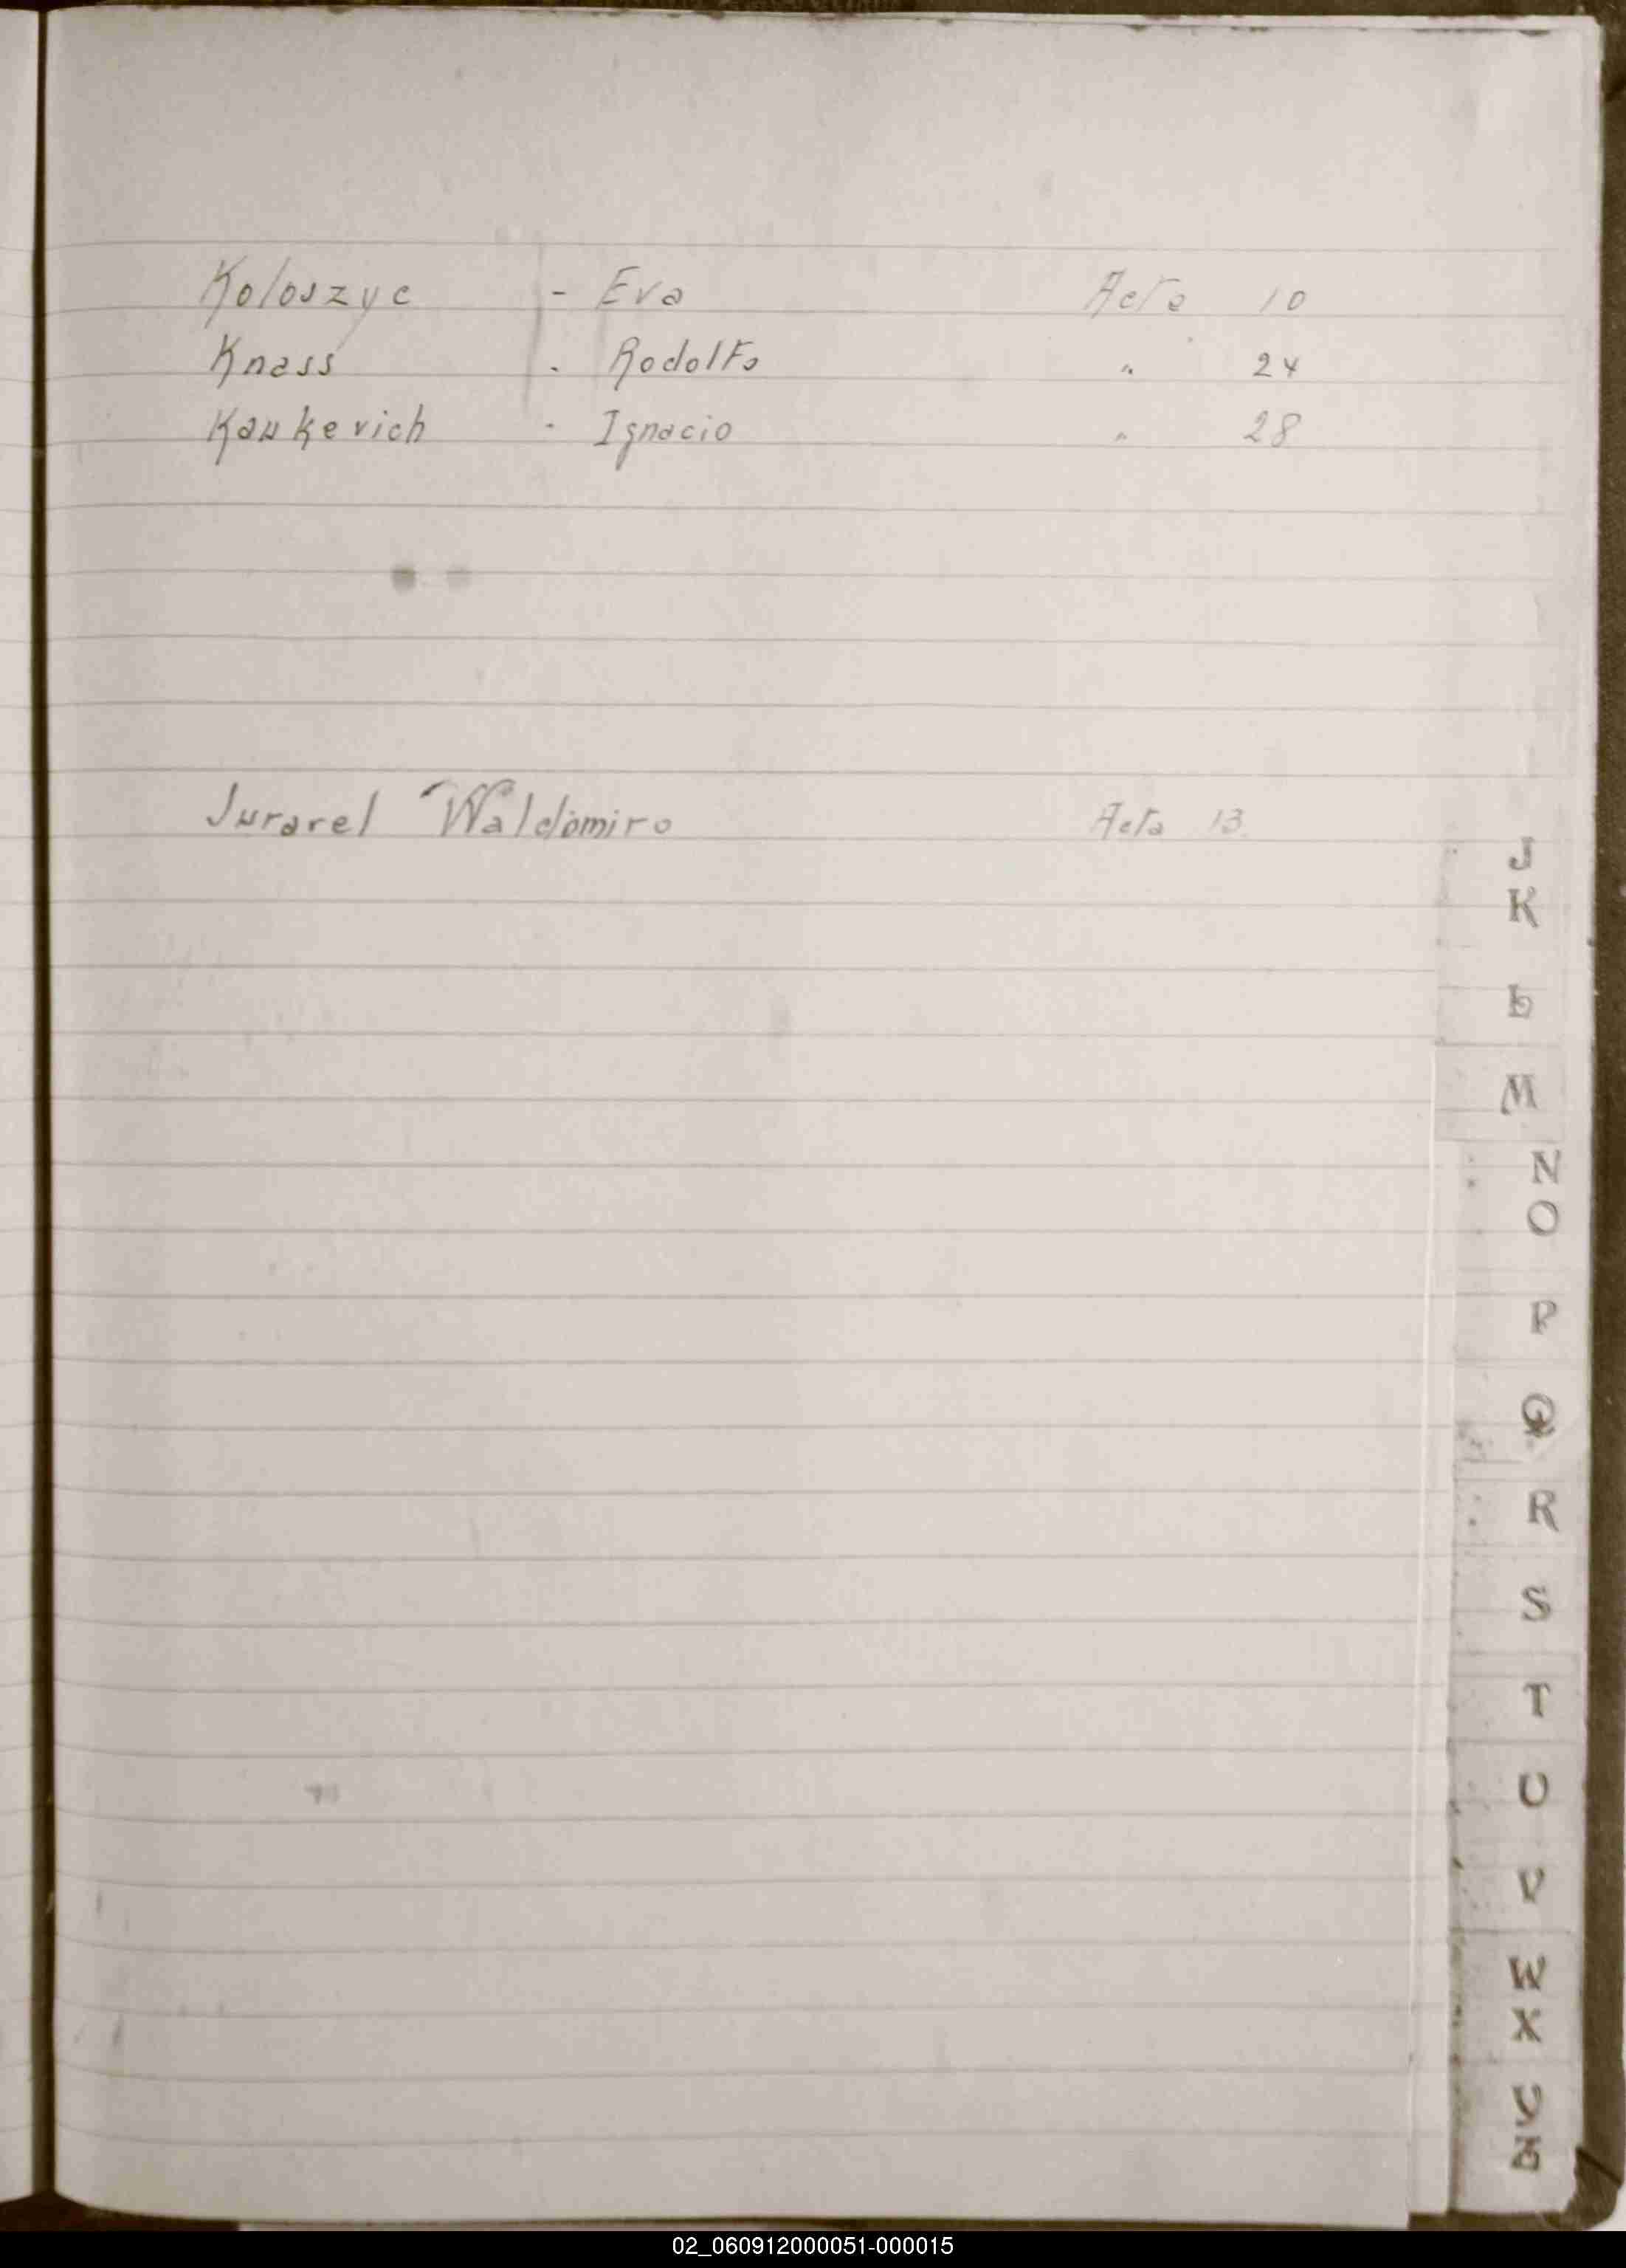 Koloszyc - Eva Acta 10
Knass - Rodolfo " 24
Kaukevich - Ignacio " 28
Jurarel Waldomiro Acta 13
J
K
L
M
N
O
P
Q
R
S
T
U
V
W
X
Y
Z
02_060912000051-000015